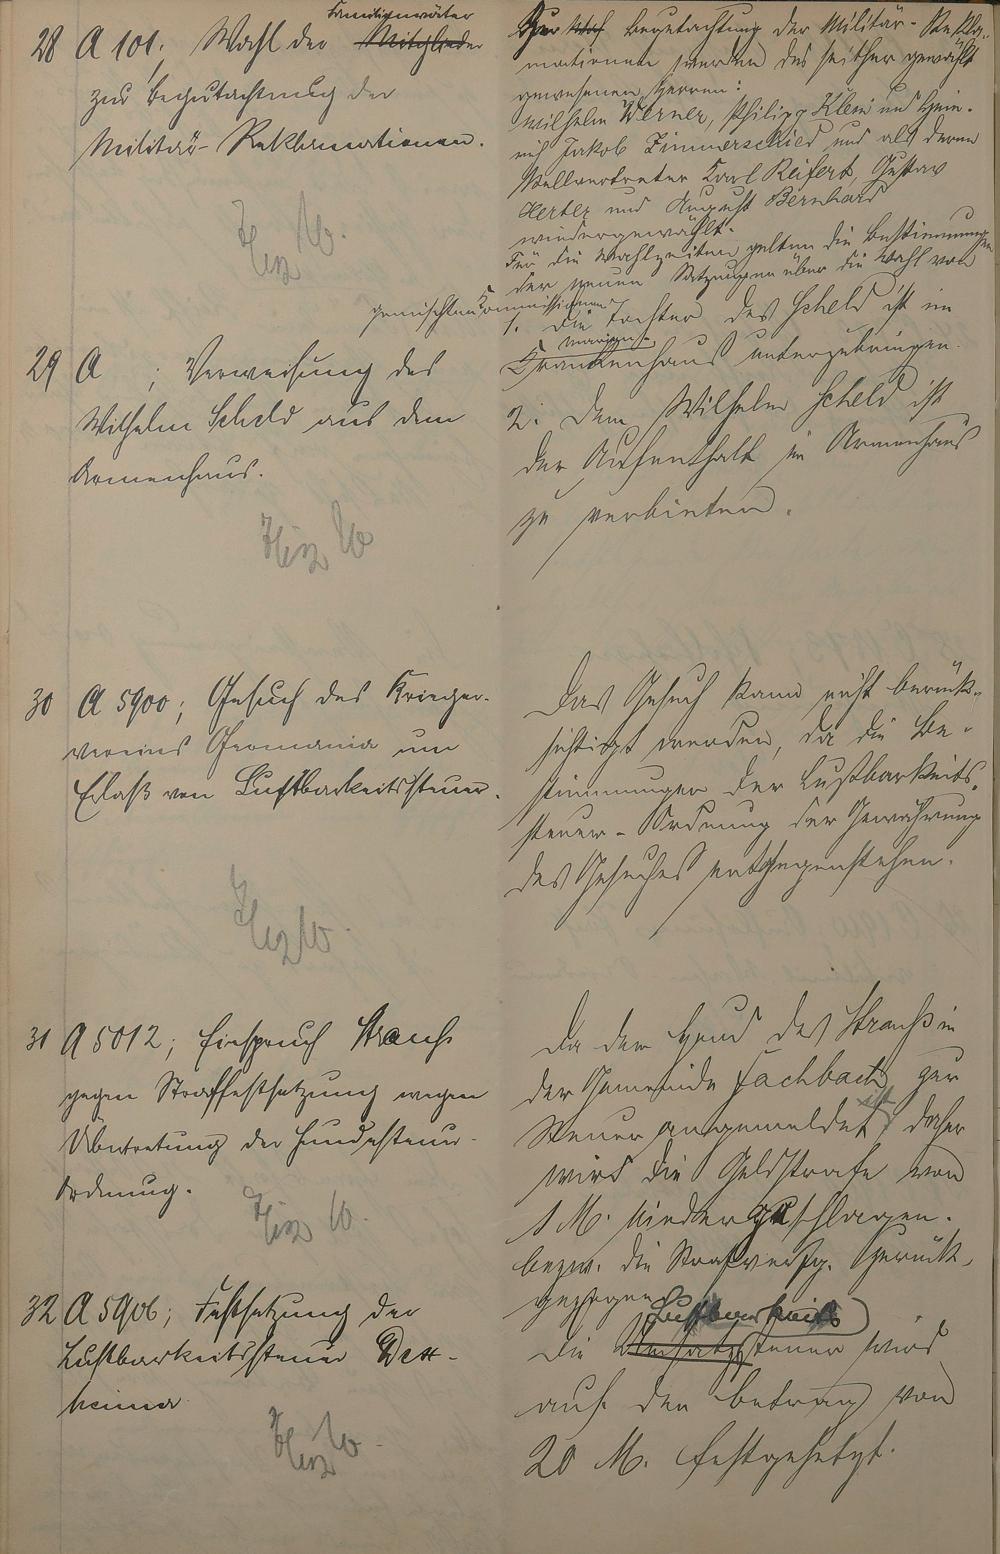 Familienväter
28 A 101; Wahl der Mitglieder
zur Begutachtung der
Militär-Reklamationen.
Zur Begutachtung der Militär-Rekla-
mationen werden die seither gewählt
gewesenen Herren:
Wilhelm Werner, Philipp Klein und Hein-
rich Jakob Zimmerschied und als deren
Stellvertreter Karl Reifert, Gustav
Herber und August Bernhard
wiedergewählt.
Für die Wahlzeiten gelten die Bestimmungen
der neuen Satzungen über die Wahl von
gemischten Kommissionen.
29 A ; Verweisung des
Wilhelm Scheld aus dem
Armenhaus.
1. Die Tochter des Scheld ist im
Krankenhaus unterzubringen.
2. Dem Wilhelm Scheld ist
der Aufenthalt im Armenhaus
zu verbieten.
30 A 5900; Gesuch des Krieger-
vereins Germania um
Erlaß von Lustbarkeitssteuer.
Das Gesuch kann nicht berück-
sichtigt werden, da die Be-
stimmungen der Lustbarkeits-
steuer-Ordnung der Gewährung
des Gesuches entgegenstehen.
31 A 5012; Einspruch Strauß
gegen Straffestsetzung wegen
Übertretung der Hundesteuer-
Ordnung.
Da der Hund des Strauß in
der Gemeinde Fachbach zur
Steuer angemeldet ist, daher
wird die Geldstrafe von
1 M. niedergeschlagen.
bezw. die Strafverfg. zurück-
gezogen.
32 A 5906; Festsetzung der
Lustbarkeitssteuer Dett-
heimer
Lustbarkeits
Die Umsatzsteuer wird
auf den Betrag von
20 M. festgesetzt.